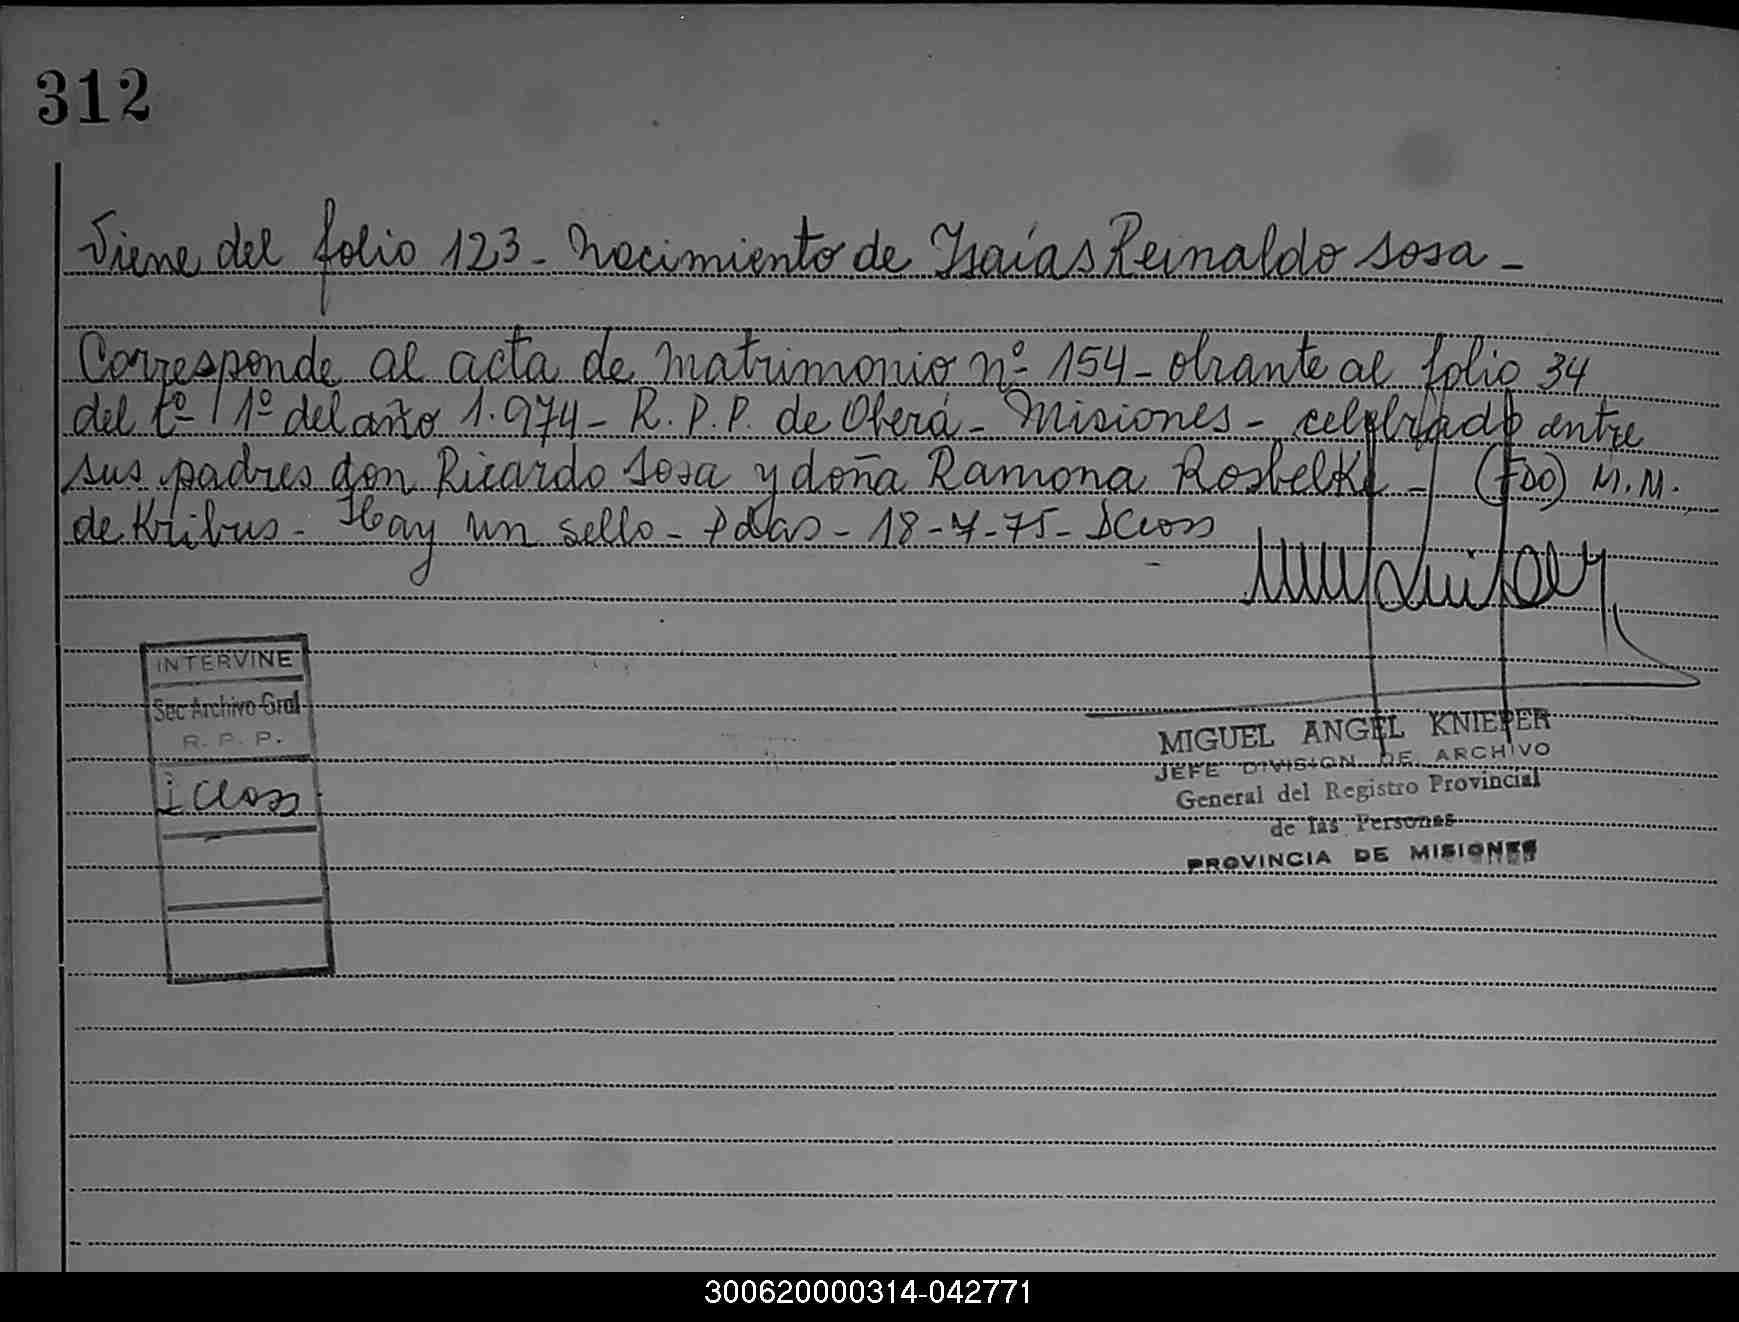 312
Viene del folio 123 - Nacimiento de Isaías Reinaldo Sosa -
Corresponde al acta de matrimonio nº 154 - obrante al folio 34
del tº 1º del año 1.974 - R. P. P. de Oberá - Misiones - celebrado entre
sus padres don Ricardo Sosa y doña Ramona Rosbelki - (FDO) M. M.
de Kribus - Hay un sello - Pdas - 18-7-75 - ICloss
INTERVINE
Sec Archivo Gral
R. P. P.
iCloss
MIGUEL ANGEL KNIEPER
JEFE DIVISION DE ARCHIVO
General del Registro Provincial
de las Personas
PROVINCIA DE MISIONES
300620000314-042771